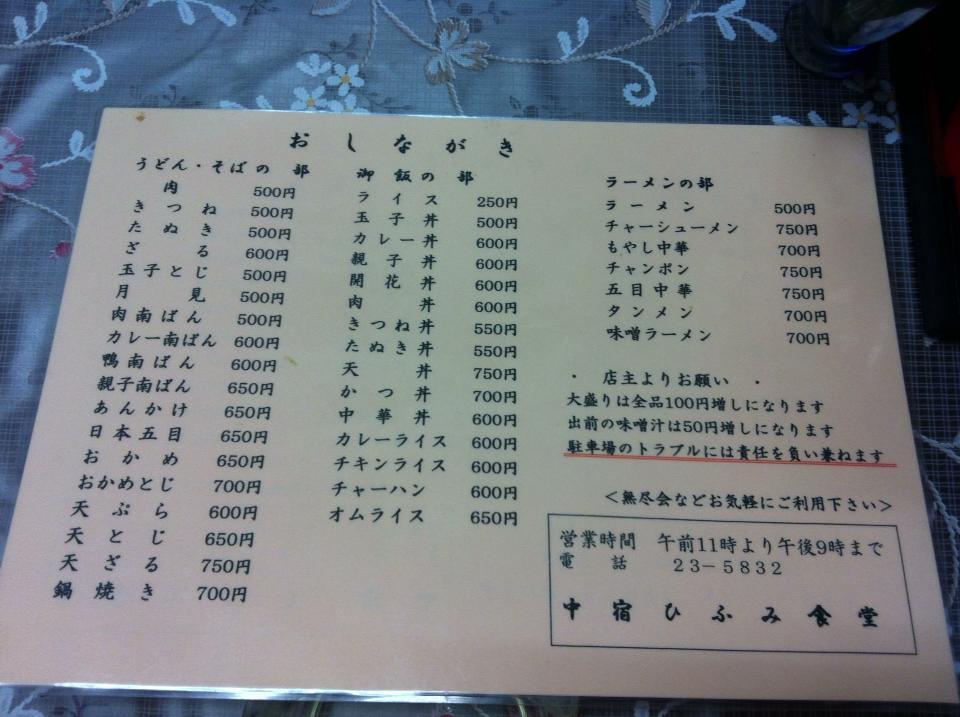 おしながき
うどん・そばの部
肉 500円
きつね 500円
たぬき 500円
ざる 600円
玉子とじ 500円
月見 500円
肉南ばん 500円
カレー南ばん 600円
鴨南ばん 600円
親子南ばん 650円
あんかけ 650円
日本五目 650円
おかめ 650円
おかめとじ 700円
天ぷら 600円
天とじ 650円
天ざる 750円
鍋焼き 700円
御飯の部
ライス 250円
玉子丼 500円
カレー丼 600円
親子丼 600円
開花丼 600円
肉丼 600円
きつね丼 550円
たぬき丼 550円
天丼 750円
かつ丼 700円
中華丼 600円
カレーライス 600円
チキンライス 600円
チャーハン 600円
オムライス 650円
ラーメンの部
ラーメン 500円
チャーシューメン 750円
もやし中華 700円
チャンポン 750円
五目中華 750円
タンメン 700円
味噌ラーメン 700円
・ 店主よりお願い ・
大盛りは全品100円増しになります
出前の味噌汁は50円増しになります
駐車場のトラブルには責任を負い兼ねます
＜無尽会などお気軽にご利用下さい＞
営業時間 午前11時より午後9時まで
電話 23－5832
中宿 ひふみ食堂